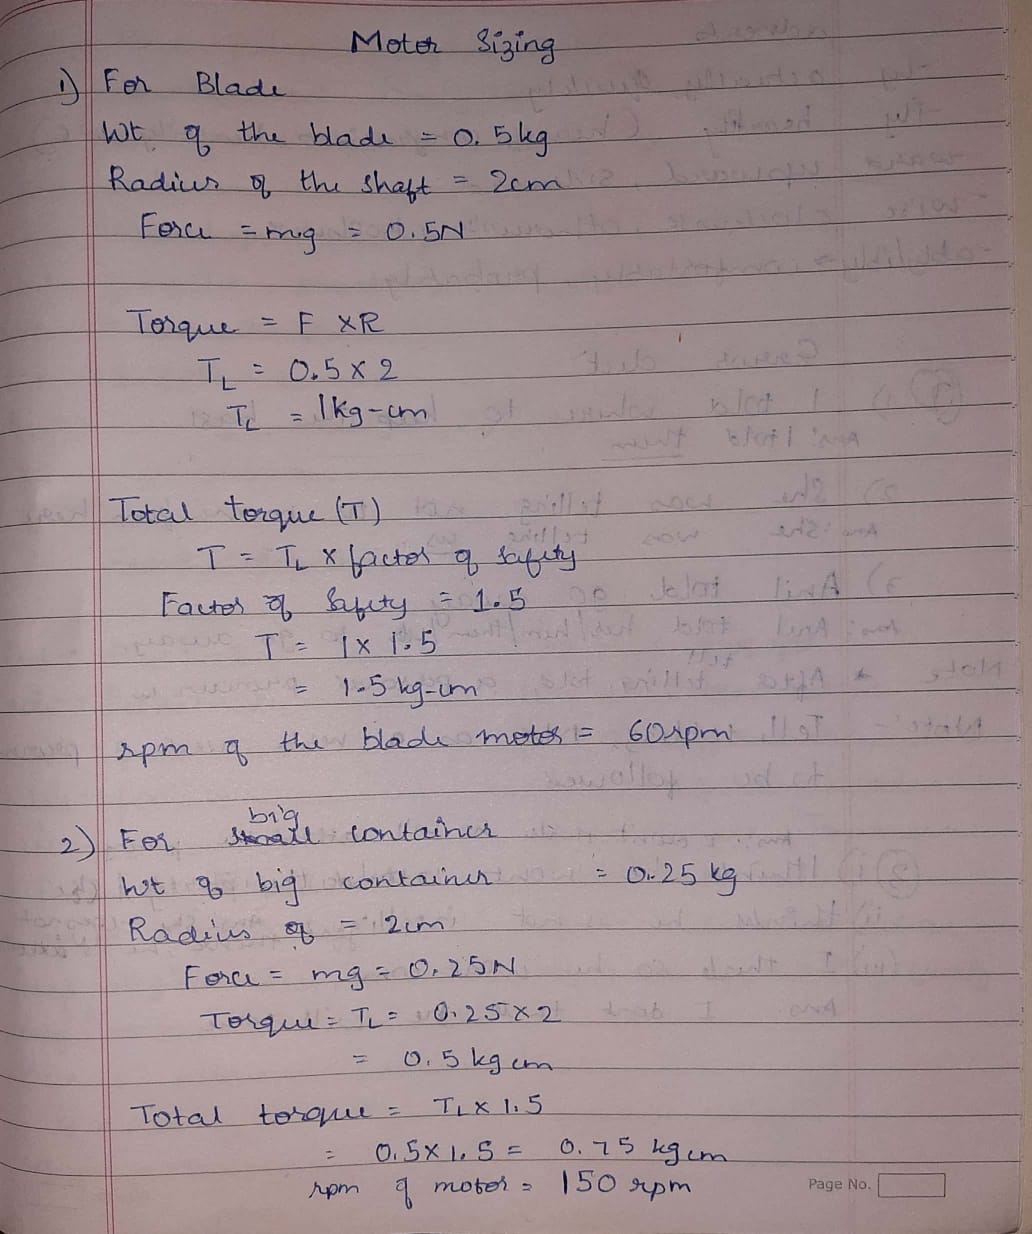 Motor Sizing
1) For Blade
Wt. of the blade = 0.5kg
Radius of the shaft = 2cm
Force = mg = 0.5N
Torque = F x R
TL = 0.5 x 2
TL = 1kg-cm
Total torque (T)
T = TL x factor of safety
Factor of Safety = 1.5
T = 1 x 1.5
= 1.5 kg-cm
rpm of the blade motor = 60rpm
big
2) For small container
wt of big container = 0.25 kg
Radius of = 2cm
Force = mg = 0.25N
Torque = TL = 0.25 x 2
= 0.5 kg cm
Total torque = TL x 1.5
= 0.5 x 1.5 = 0.75 kg cm
rpm of motor = 150 rpm
Page No.